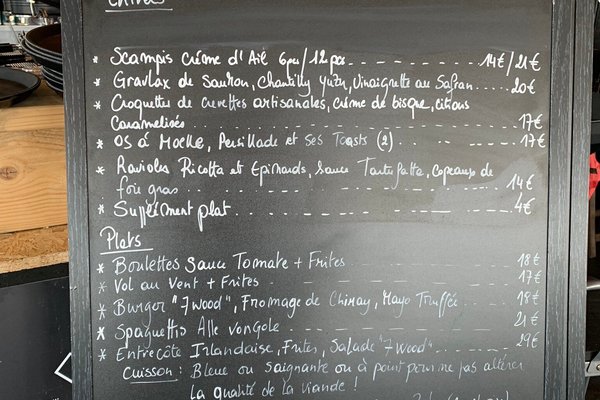 Entrées
* Scampis crème d'Ail 6pcs/12pcs 14€/21€
* Gravlax de Saumon, Chantilly Yuzu, Vinaigrette au Safran 20€
* Croquettes de crevettes artisanales, crème de bisque, citrons
Caramelisés 17€
* OS à Moelle, Persillade et Ses Toasts (2) 17€
* Ravioles Ricotta et Epinards, Sauce Tartufata, Copeaux de
foie gras 14€
* Supplément plat 4€
Plats
* Boulettes Sauce Tomate + Frites 18€
* Vol au Vent + Frites 17€
* Burger "7wood", Fromage de Chimay, Mayo Truffée 18€
* Spaghettis Alle Vongole 21€
* Entrecôte Irlandaise, Frites, Salade "7wood" 29€
Cuisson : Bleue ou saignante ou à point pour ne pas altérer
la qualité de la viande !